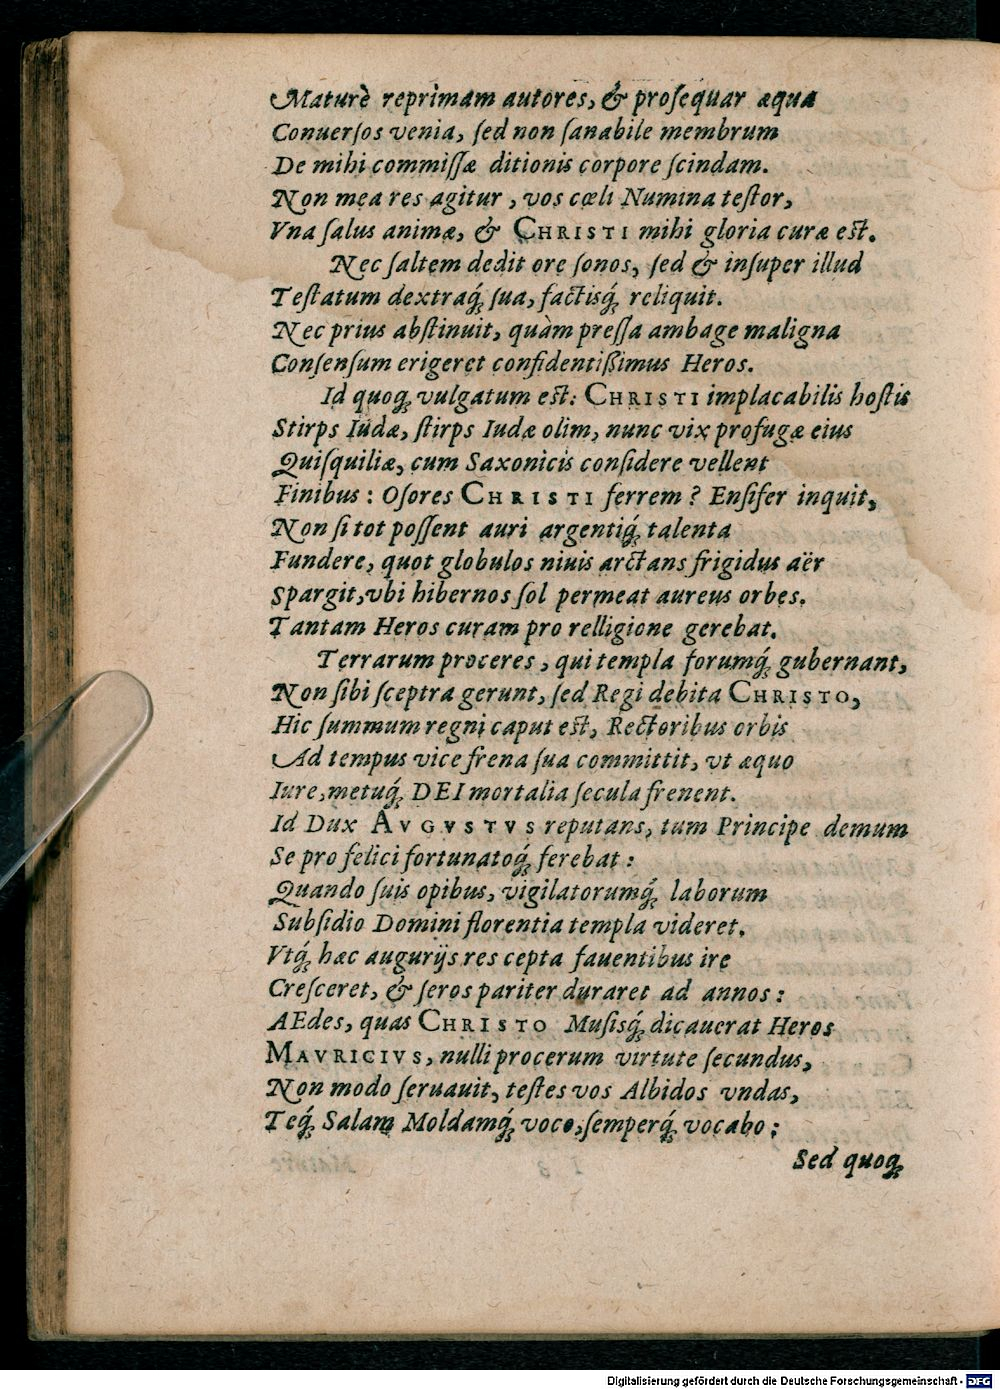 Maturè reprimam autores, & proſequar æqua
Conuerſos venia, ſed non ſanabile membrum
De mihi commiſſæ ditionis corpore ſcindam.
Non mea res agitur, vos cœli Numina teſtor,
Vna ſalus animæ, & CHRISTI mihi gloria curæ eſt.
Nec ſaltem dedit ore ſonos, ſed & inſuper illud
Teſtatum dextraq́; ſua, factisq́; reliquit.
Nec prius abſtinuit, quàm preſſa ambage maligna
Conſenſum erigeret confidentißimus Heros.
Id quoq; vulgatum eſt: CHRISTI implacabilis hoſtis
Stirps Iudæ, ſtirps Iudæ olim, nunc vix profugæ eius
Quiſquiliæ, cum Saxonicis conſidere vellent
Finibus: Oſores CHRISTI ferrem? Enſifer inquit,
Non ſi tot poſſent auri argentiq́; talenta
Fundere, quot globulos niuis arctans frigidus aër
Spargit, vbi hibernos ſol permeat aureus orbes.
Tantam Heros curam pro relligione gerebat.
Terrarum proceres, qui templa forumq́; gubernant,
Non ſibi ſceptra gerunt, ſed Regi debita CHRISTO,
Hic ſummum regni caput eſt, Rectoribus orbis
Ad tempus vice frena ſua committit, vt æquo
Iure, metuq́; DEI mortalia ſecula frenent.
Id Dux AVGVSTVS reputans, tum Principe demum
Se pro felici fortunatoq́; ferebat:
Quando ſuis opibus, vigilatorumq́; laborum
Subſidio Domini florentia templa videret.
Vtq́; hac augurijs res cepta fauentibus ire
Creſceret, & ſeros pariter duraret ad annos:
AEdes, quas CHRISTO Muſisq́; dicauerat Heros
MAVRICIVS, nulli procerum virtute ſecundus,
Non modo ſeruauit, teſtes vos Albidos vndas,
Teq́; Salam Moldamq́; voco, ſemperq́; vocabo;
Sed quoq;
Digitalisierung gefördert durch die Deutsche Forschungsgemeinschaft - DFG